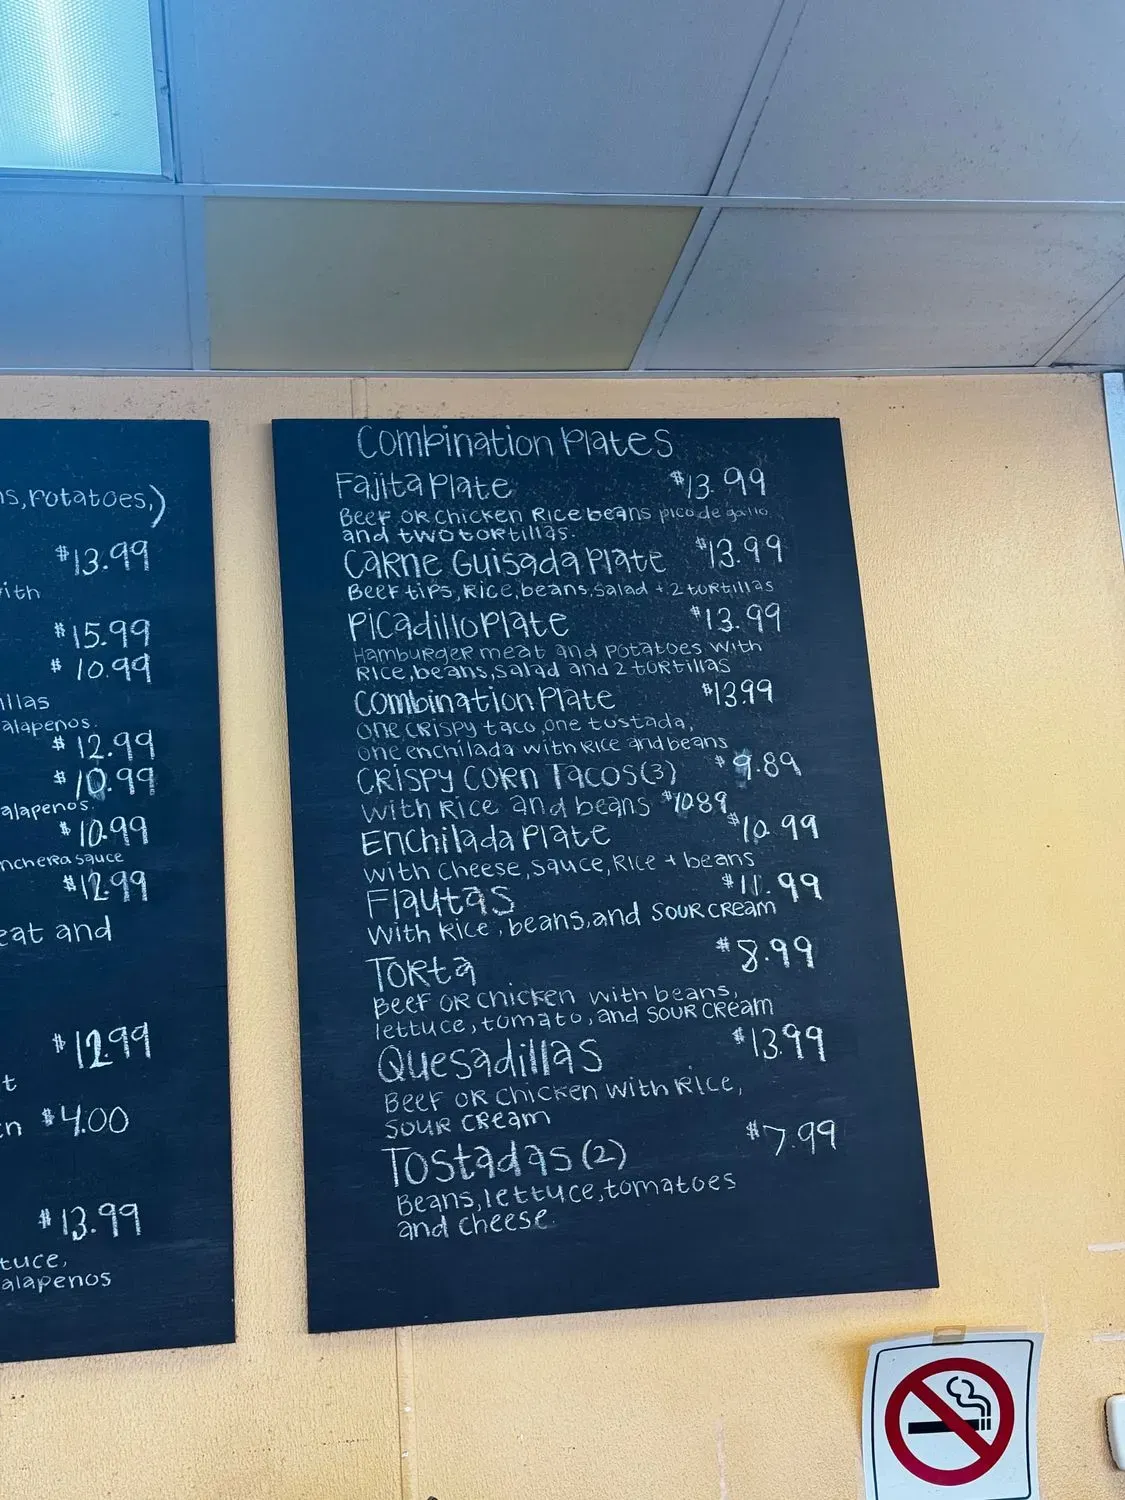 s, potatoes,)
$13.99
ith
$15.99
$10.99
illas
alapenos.
$12.99
$10.99
alapenos.
$10.99
nchera sauce
$12.99
eat and
$12.99
t
n $4.00
$13.99
tuce,
alapenos
Combination Plates
Fajita Plate $13.99
Beef or chicken Rice beans pico de gallo
and two tortillas.
Carne Guisada Plate $13.99
Beef tips, Rice, beans, salad + 2 tortillas
Picadillo Plate $13.99
Hamburger meat and potatoes with
Rice, beans, salad and 2 tortillas
Combination Plate $13.99
One crispy taco, one tostada,
one enchilada with Rice and beans
Crispy Corn Tacos (3) $9.89
with Rice and beans $10.89
Enchilada Plate $10.99
with cheese, sauce, Rice + beans
Flautas $11.99
with Rice, beans, and sour cream
Torta $8.99
Beef or chicken with beans,
lettuce, tomato, and sour cream
Quesadillas $13.99
Beef or chicken with Rice,
sour cream
Tostadas (2) $7.99
Beans, lettuce, tomatoes
and cheese.